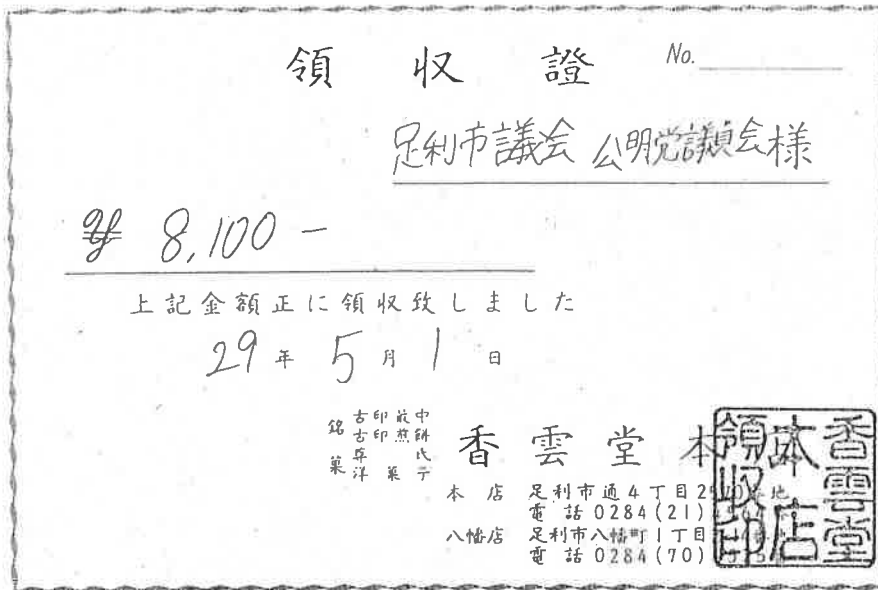 領収證 No.
足利市議会 公明党議員会様
¥ 8,100 -
上記金額正に領収致しました
29年 5月 1日
銘菓
香雲堂本
本店 足利市通4丁目2
電話 0284(21)
八幡店 足利市八幡町1丁目
電話 0284(70)
香雲堂
本店
領収印